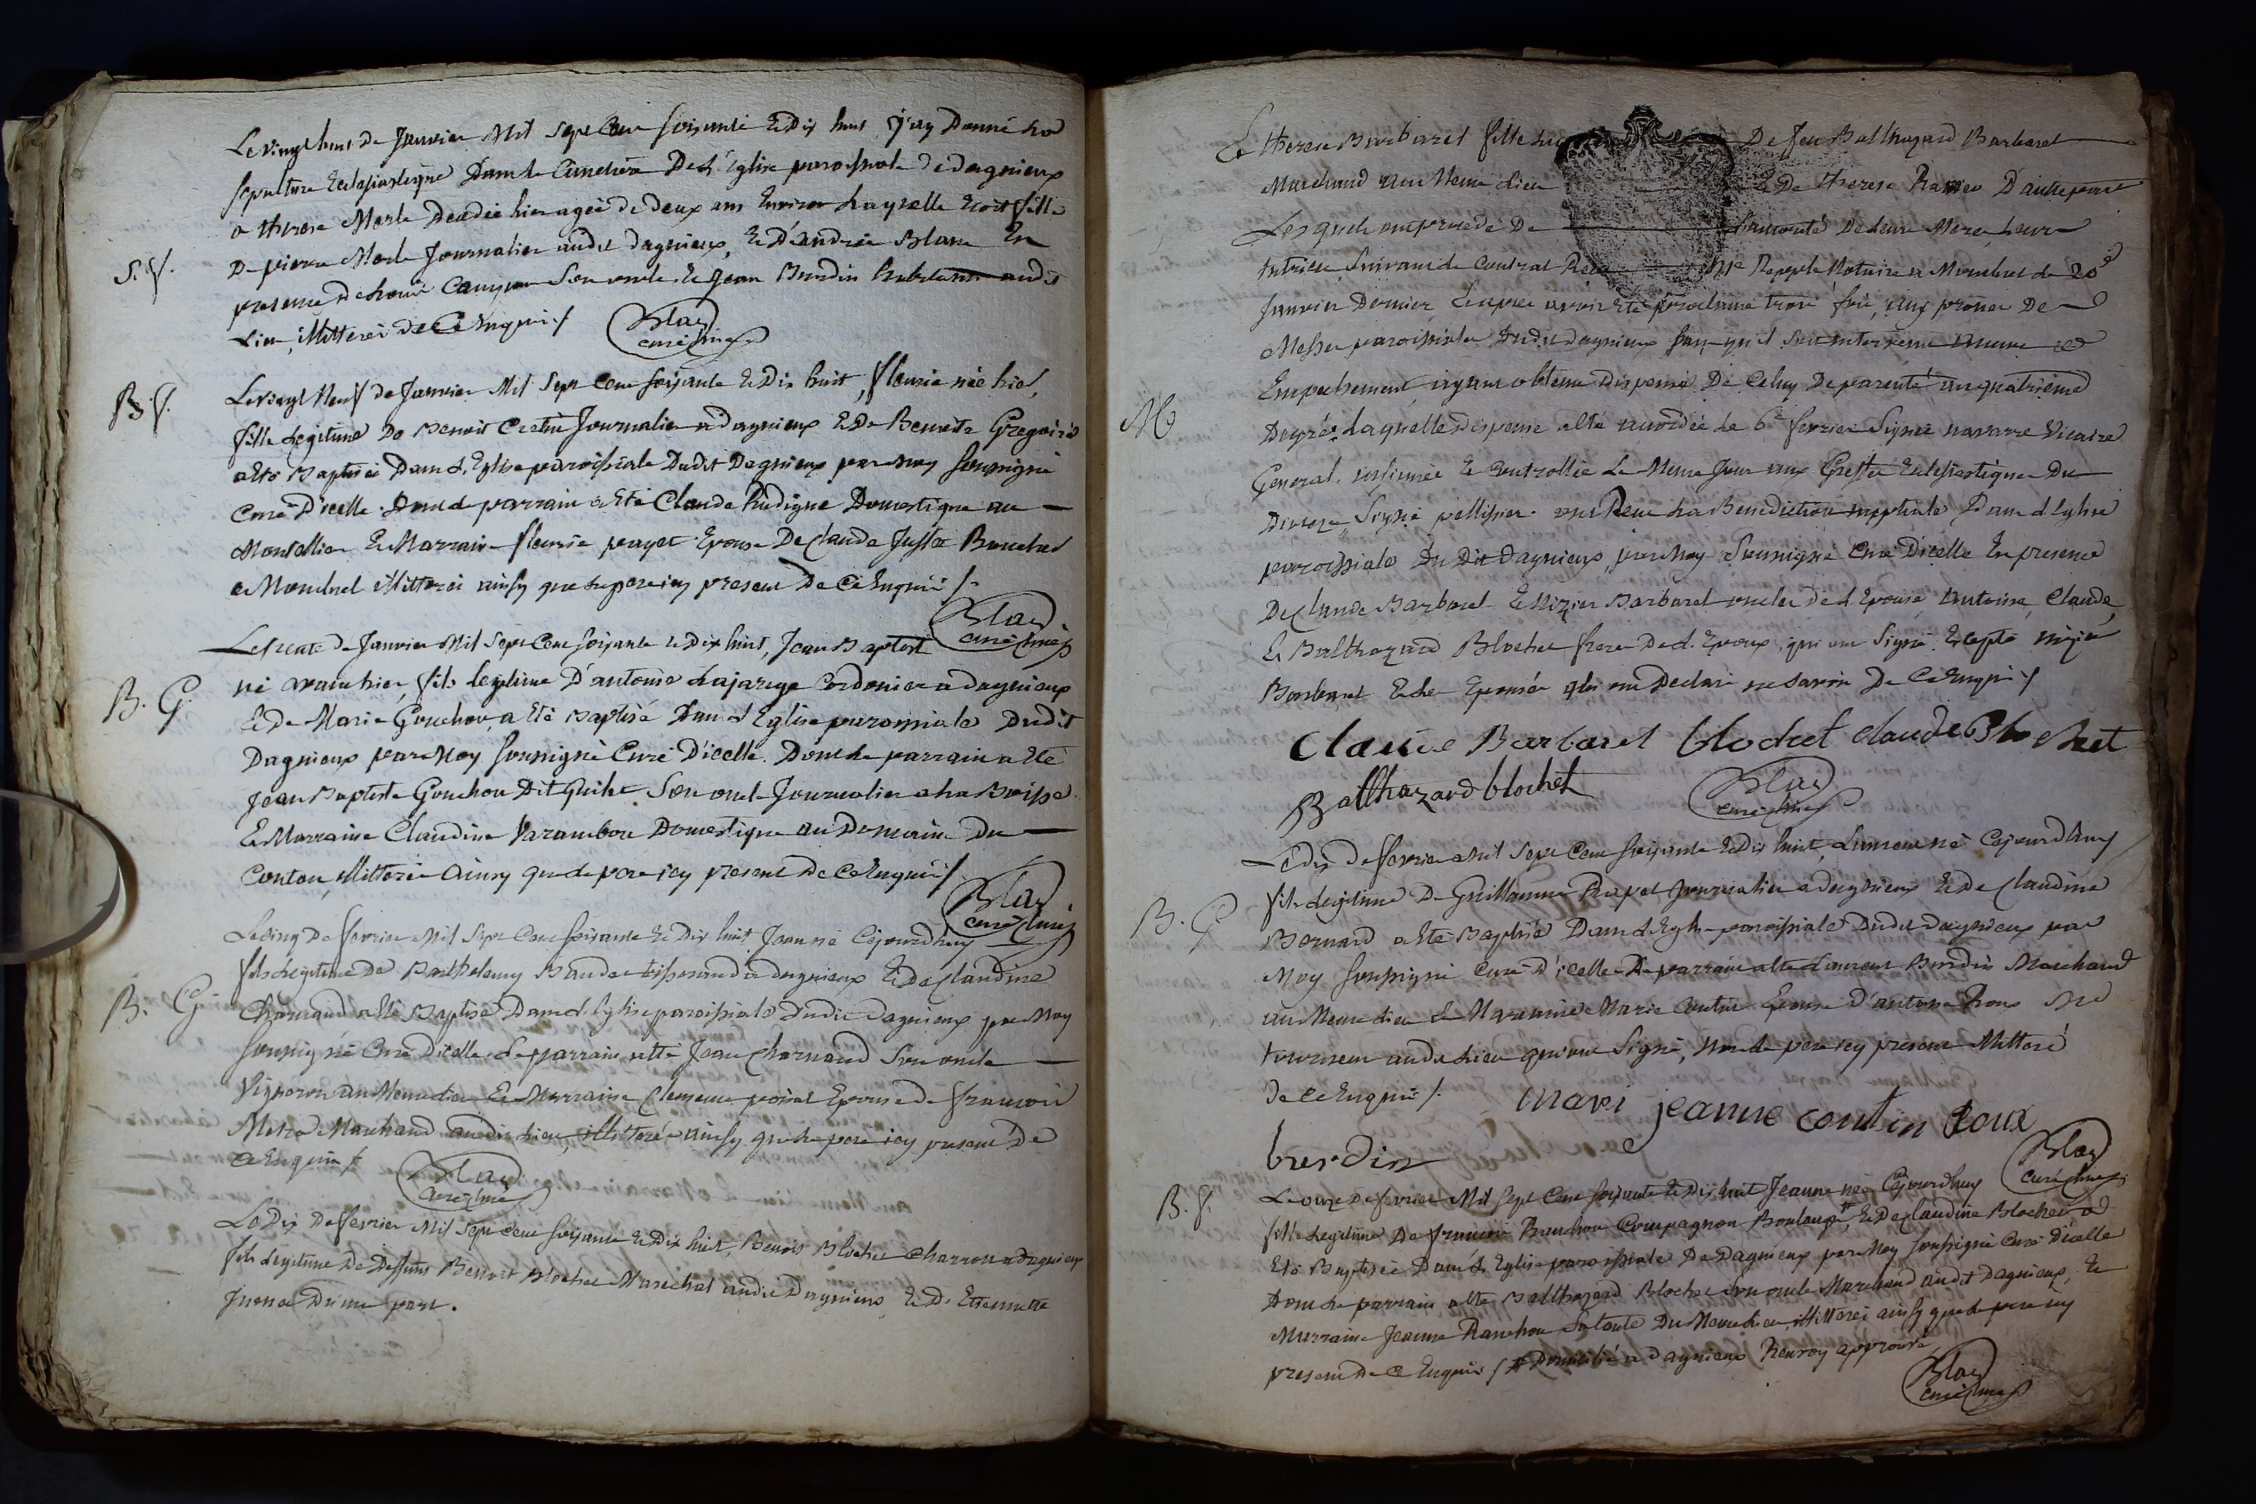 Le vingt huit de Janvier Mil Sept Cent soixante et Dix huit j'ay Donné La
sepulture Eclesiastique Dans le Cimetiere De L'Eglise paroissiale de dagnieux
a therese Merle Decedée hier agée de deux ans Environ Laquelle Etoit fille
De pierre Merle Journalier audit dagnieux, et D'andrée Blanc En
S. f.
presence de Louis son oncle et Jean Burdin habitants audit
Lieu, illitterés de Ce Enquis /
Blay
curé
B. f.
Le vingt Neuf de Janvier Mil Sept Cent soixante et Dix huit, fleurie née hier,
fille Legitime De Benoit Journalier a dagnieux et De Benoite Gregoire
a été Baptisée Dans L'Eglise paroissiale Dudit Dagnieux par Moy soussigné
Curé D'icelle. Dont Le parrain a été Claude Domestique au
Montellier et Marraine fleurie Epouse De Claude
a Montluel illitterés ainsy que Le pere icy present De Ce Enquis /.
Blay
curé
Le trente de Janvier Mil Sept Cent soixante et dix huit, Jean Baptiste
né avant hier, fils Legitime D'antoine Lajarige Cordonier a dagnieux
B. G.
et De Marie Gouchon, a été Baptisé Dans L'Eglise paroissiale Dudit
Dagnieux par Moy soussigné Curé D'icelle. Dont Le parrain a été
Jean Baptiste Gouchon Dit son oncle Journalier a La Boisse
et Marraine Claudine Varambon Domestique au Domaine Du
Conton, illitterés Ainsy que Le pere icy present De Ce Enquis /
Blay
curé
Le cinq De fevrier Mil Sept Cent soixante et Dix huit Jean né Cejourdhuy
fils Legitime De Barthelemy Baudet tisserand a dagnieux et De Claudine
B. G.
Charnand a été Baptisé Dans L'Eglise paroissiale Dudit Dagnieux par Moy
soussigné Curé D'icelle, Le parrain a été Jean Charnand son oncle
Vigneron au Meme lieu et Marraine Clemence Epouse de francois
Marchand audit Lieu, illitterés ainsy que Le pere icy present de
Ce Enquis /.
Blay
curé
Le Dix De fevrier Mil Sept Cent soixante et Dix huit, Benoit Blochet Charron a Dagnieux
fils Legitime De Deffunts Benoit Blochet Maréchal audit Dagnieux et D' Etiennette
D'une part.
Et therese Barbaret fille De feu Balthazard Barbaret
Marchand au Meme Lieu et De therese D'autre part
Lesquels ont procedé De L'autorité De Leur Mere, Leur
suivant Le Contrat Notaire a Montluel Le 20e
Janvier Dernier, et apres avoir été proclamé trois fois, aux prônes De
Messes paroissiales Dudit dagnieux sans qu'il soit intervenu aucune
M
Empechement, ayant obtenu Dispense De Celuy De parenté au quatrieme
Degrés Laquelle dispense a été accordée Le 6e fevrier Signée navarre Vicaire
General. insinuée et Controllée Le Meme Jour aux Greffes Eclesiastiques Du
Dioceze Signé pellissier. ont Reçu La Benediction nuptiale Dans L'Eglise
paroissiale Du Dit dagnieux, par Moy Soussigné Curé D'icelle En presence
De Claude Barbaret et Nizier Barbaret oncles de L'Epouse, Antoine, Claude,
et Balthazard Blochet freres De L'Epoux, qui ont Signé. Excepté nizier
Barbaret et Les Epoux qui ont Declaré ne savoir De Ce Enquis /
Claude Barbaret blochet claude Blochet
Balthazard blochet
Blay
curé
Le dix De fevrier Mil Sept Cent soixante et Dix huit, Laurent né Cejourd'huy
fils Legitime De Guillaume Journalier a dagnieux et De Claudine
B. G.
Bernard a été Baptisé Dans L'Eglise paroissiale Dudit dagnieux par
Moy soussigné Curé D'icelle. Le parrain a été Laurent Burdin Marchand
au Meme Lieu et Marraine Marie Coutin Epouse D'antoine Roux
audit Lieu qui ont Signé, Non Le pere icy present illitteré
De Ce Enquis /.
mari jeanne coutin Roux
burdin
Blay
curé
B. f.
Le onze De fevrier Mil Sept Cent soixante et Dix huit Jeanne née Cejourdhuy
fille Legitime De francois Ranchon Compagnon Boulanger et De Claudine Blochet a
été Baptisée Dans L'Eglise paroissiale De Dagnieux par Moy soussigné Curé D'icelle
Dont Le parrain a été Balthazard Blochet son oncle Marchand audit Dagnieux, et
Marraine Jeanne Ranchon sa tante Du Meme Lieu illitterés ainsy que Le pere icy
present De Ce Enquis / # Domicilié a Dagnieux Renvoy approuvé
Blay
curé